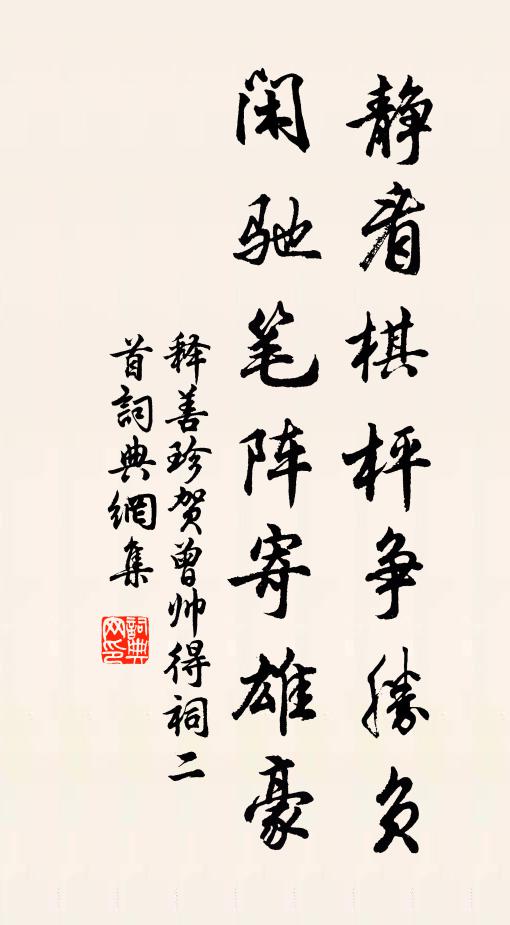 静看棋枰争勝负
闲驰笔阵寄雄豪
释善珍贺曾帅得祠二
首詞典網集
詞典
网印